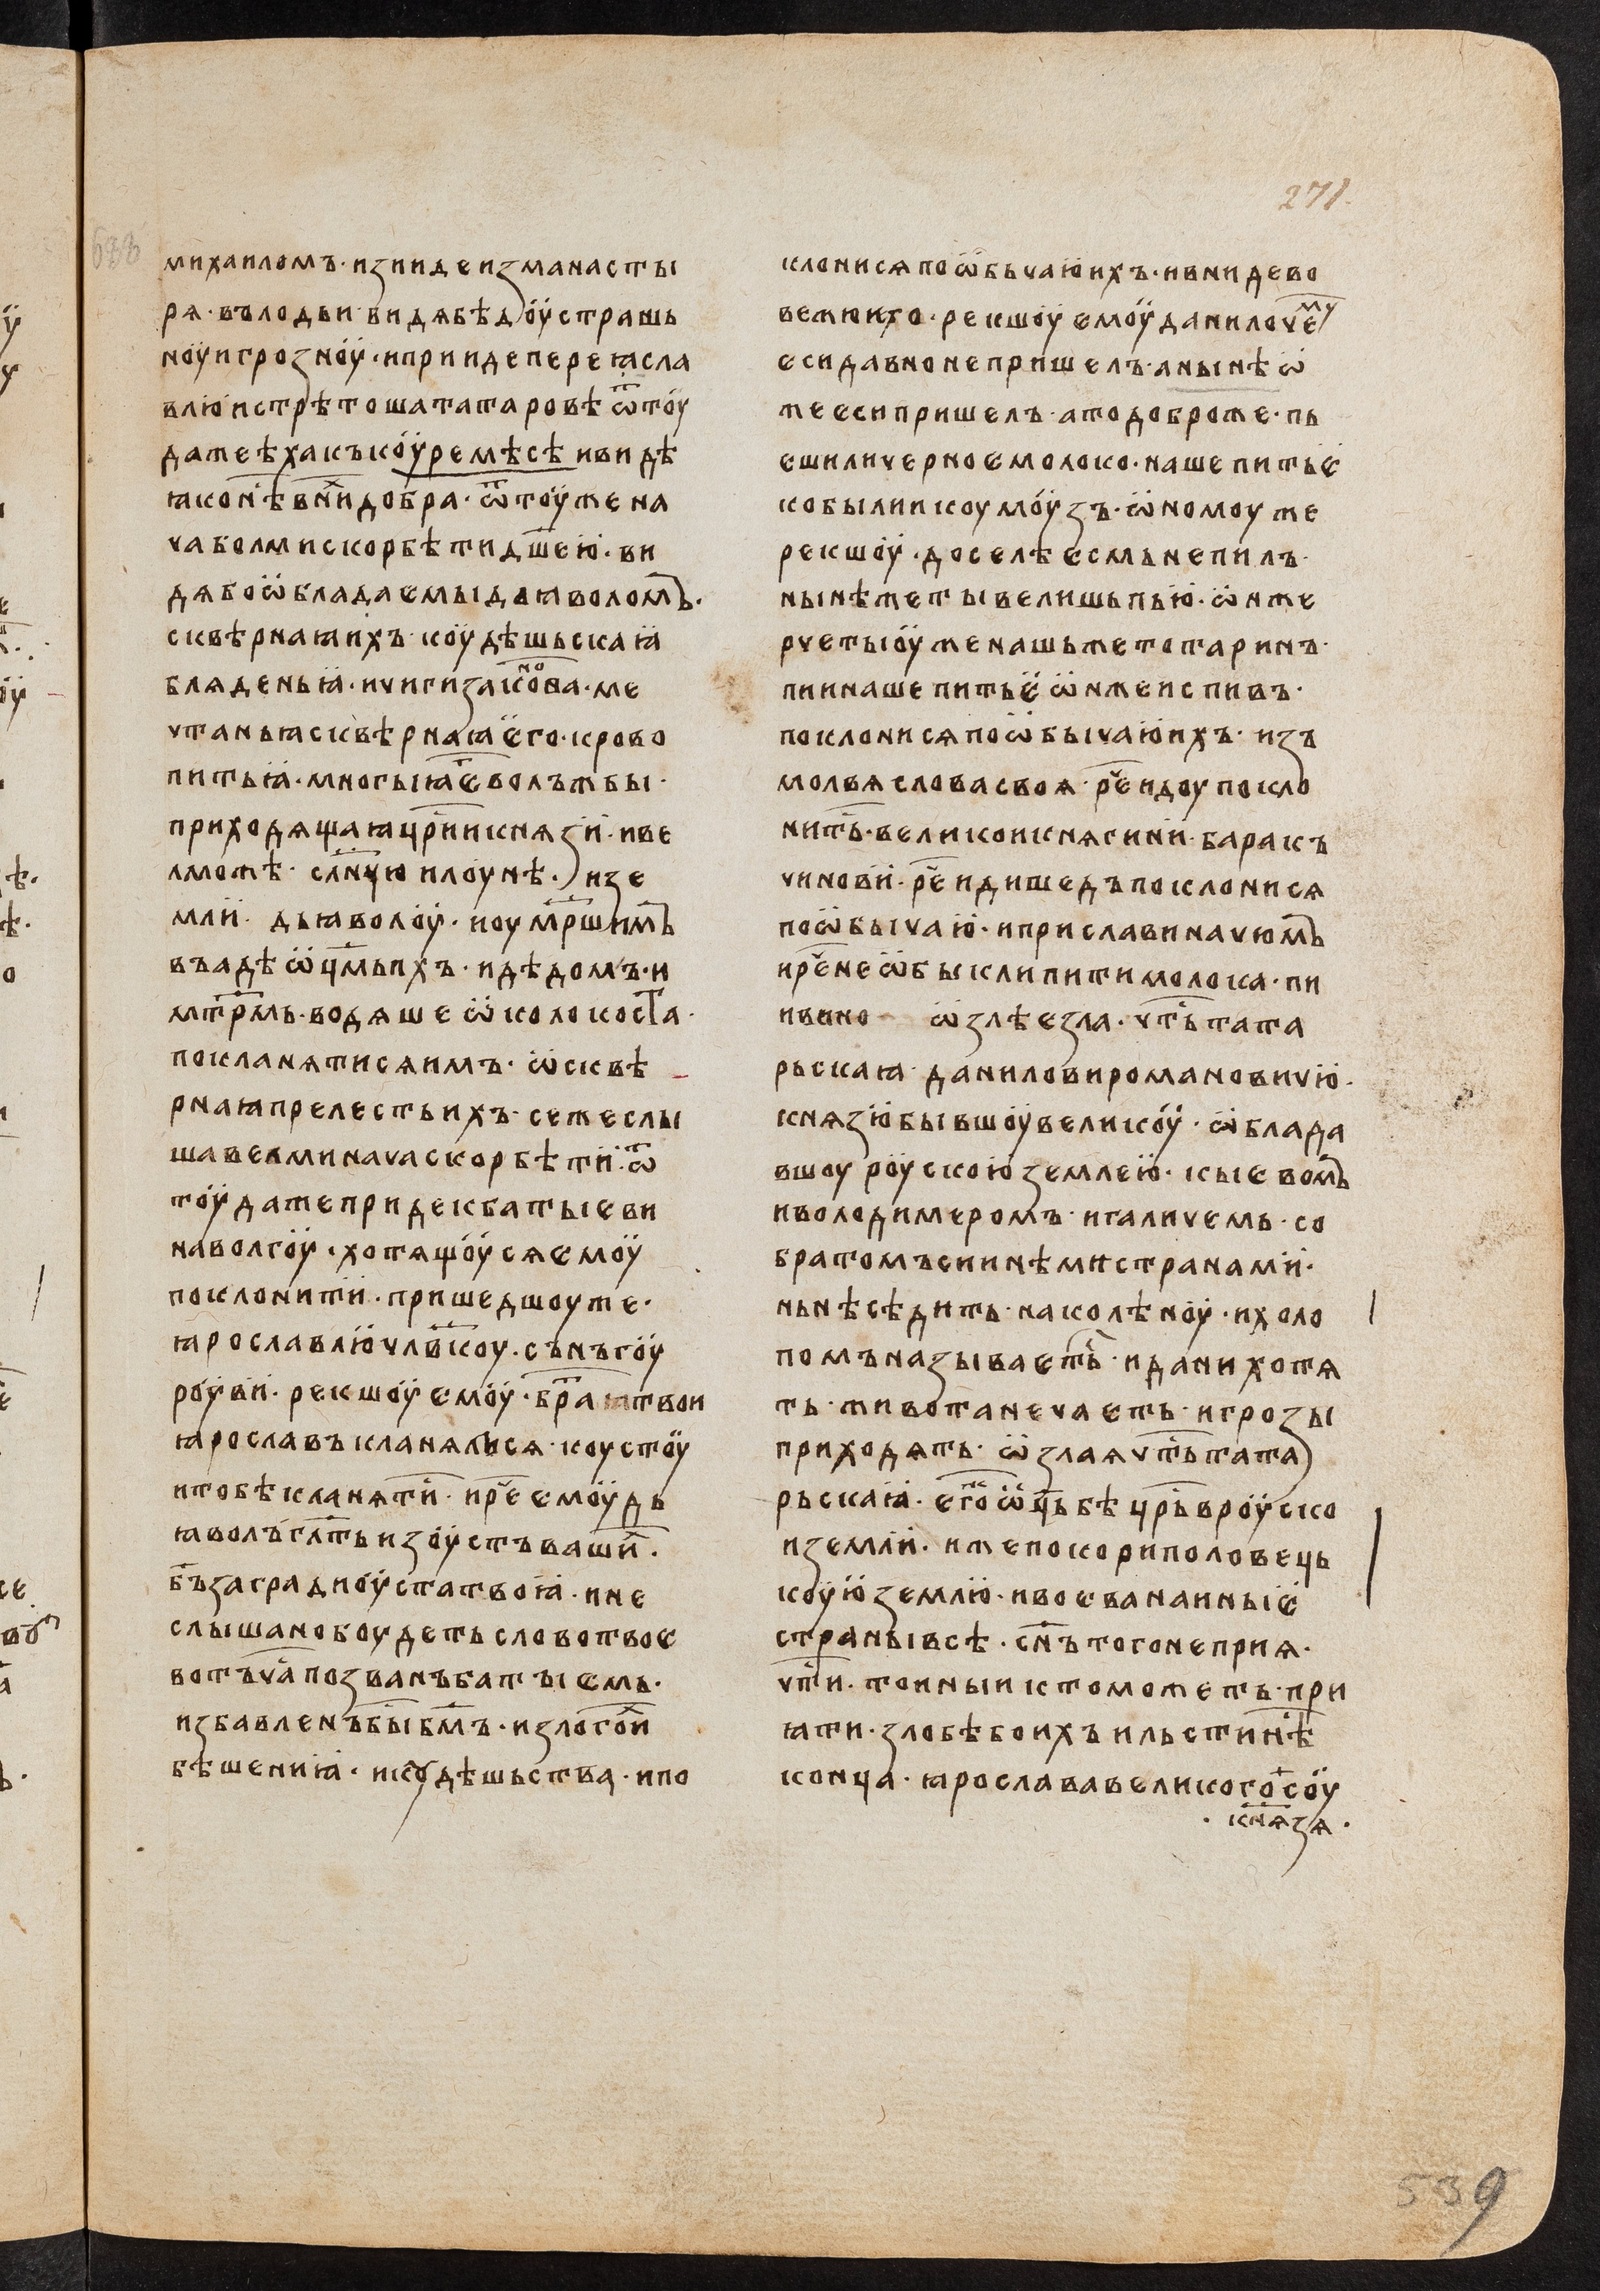 271.
688
михаиломъ · изꙑиде изманасты
рѧ · въ лодьи видѧ бѣдоу страшь
ноу и грознꙋ · и прииде переꙗсла
влю и стрѣтоша татаровѣ ѿтоу
да же ѣха къ коуремѣсѣ и видѣ
ꙗко нѣ в ни̑х добра · ѿтоу же на
ча болми скорбѣти дш҃ею · ви
дѧ бо ѡбладаемы дьꙗволомъ ·
сквѣрнаꙗ ихъ коудѣшьскаꙗ
блѧденьꙗ · и чигизаконова · ме
чтаньꙗ сквѣрнаꙗ его · крово
питьꙗ · многыꙗ е волъжбы ·
приходѧщаꙗ цр҃и и кнѧзи · и ве
лможѣ · слн҃цю и лоунѣ · и зе
мли · дьꙗволоу · и оумр҃шимъ
въ адѣ ѡц҃мь ихъ · и дѣдомъ · и
мтр҃мь · водѧше ѡколо коста ·
покланѧтисѧ имъ · ѡ сквѣ
рнаꙗ прелесть ихъ · се же слы
ша велми нача скорбѣти · ѿ
тоуда же приде к батыеви
на волгоу · хотѧщоусѧ емоу
поклонити · пришедшоу же ·
ꙗрославлю чл҃вкоу · сънъгоу
роуви · рекшоу емоу · бра҃ ꙗ твои
ꙗрославъ кланѧлъсѧ · коустоу
и тобѣ кланѧти · и рече емоу дь
ꙗволъ гл҃ть из оустъ ваши̑х ·
бъ҃ загради оуста твоꙗ · и не
слышано боудеть слово твое
во тъ ча позванъ батыемь ·
избавленъ бы бм҃ъ · и злого и̑х
бѣшениꙗ · и коудѣшьства · и по
клонисѧ по ѡбычаю ихъ · и вниде во
вежю его · рекшоу емоу данило чему
еси давно не пришелъ · а нынѣ ѡ
же еси пришелъ · а то добро же · пь
еши ли черное молоко · наше питье
кобылии коумоузъ · ѡномоу же
рекшоу · доселѣ есмь не пилъ ·
нынѣ же ты велишь пью · ѡн же
рче ты оуже нашь же тотаринъ ·
пии наше питье ѡн же испивъ ·
поклонисѧ по ѡбычаю ихъ · изъ
молвѧ слова своꙗ · рече идоу покло
нить · великои кнѧгини · баракъ
чинови · рече иди шедъ поклонисѧ
по ѡбычаю · и присла вина чюмъ
и рече не ѡбыкли пити молока · пи
и вино ѡ злѣе зла · чт҃ь тата
рьскаꙗ · данилови романовичю ·
кнѧзю бывшоу великоу · ѡблада
вшоу роускою землею · кыевомъ
и володимеромъ · и галичемь · со
братомъ си инѣми странами ·
нынѣ сѣдить на колѣноу · и холо
помъ называеть · и дани хотѧ
ть · живота не чаеть · и грозы
приходѧть · ѡ злаѧ чт҃ь тата
рьскаꙗ · его же ѡц҃ь бѣ цр҃ь в роуско
и земли · иже покори половець
коую землю · и воева на иные
страны всѣ · сн҃ъ того не приѧ ·
чт҃и · то иныи кто можеть при
ꙗти · злобѣ бо ихъ и льсти нѣ
конца · ꙗрослава великого соу
· кнѧзѧ ·
539